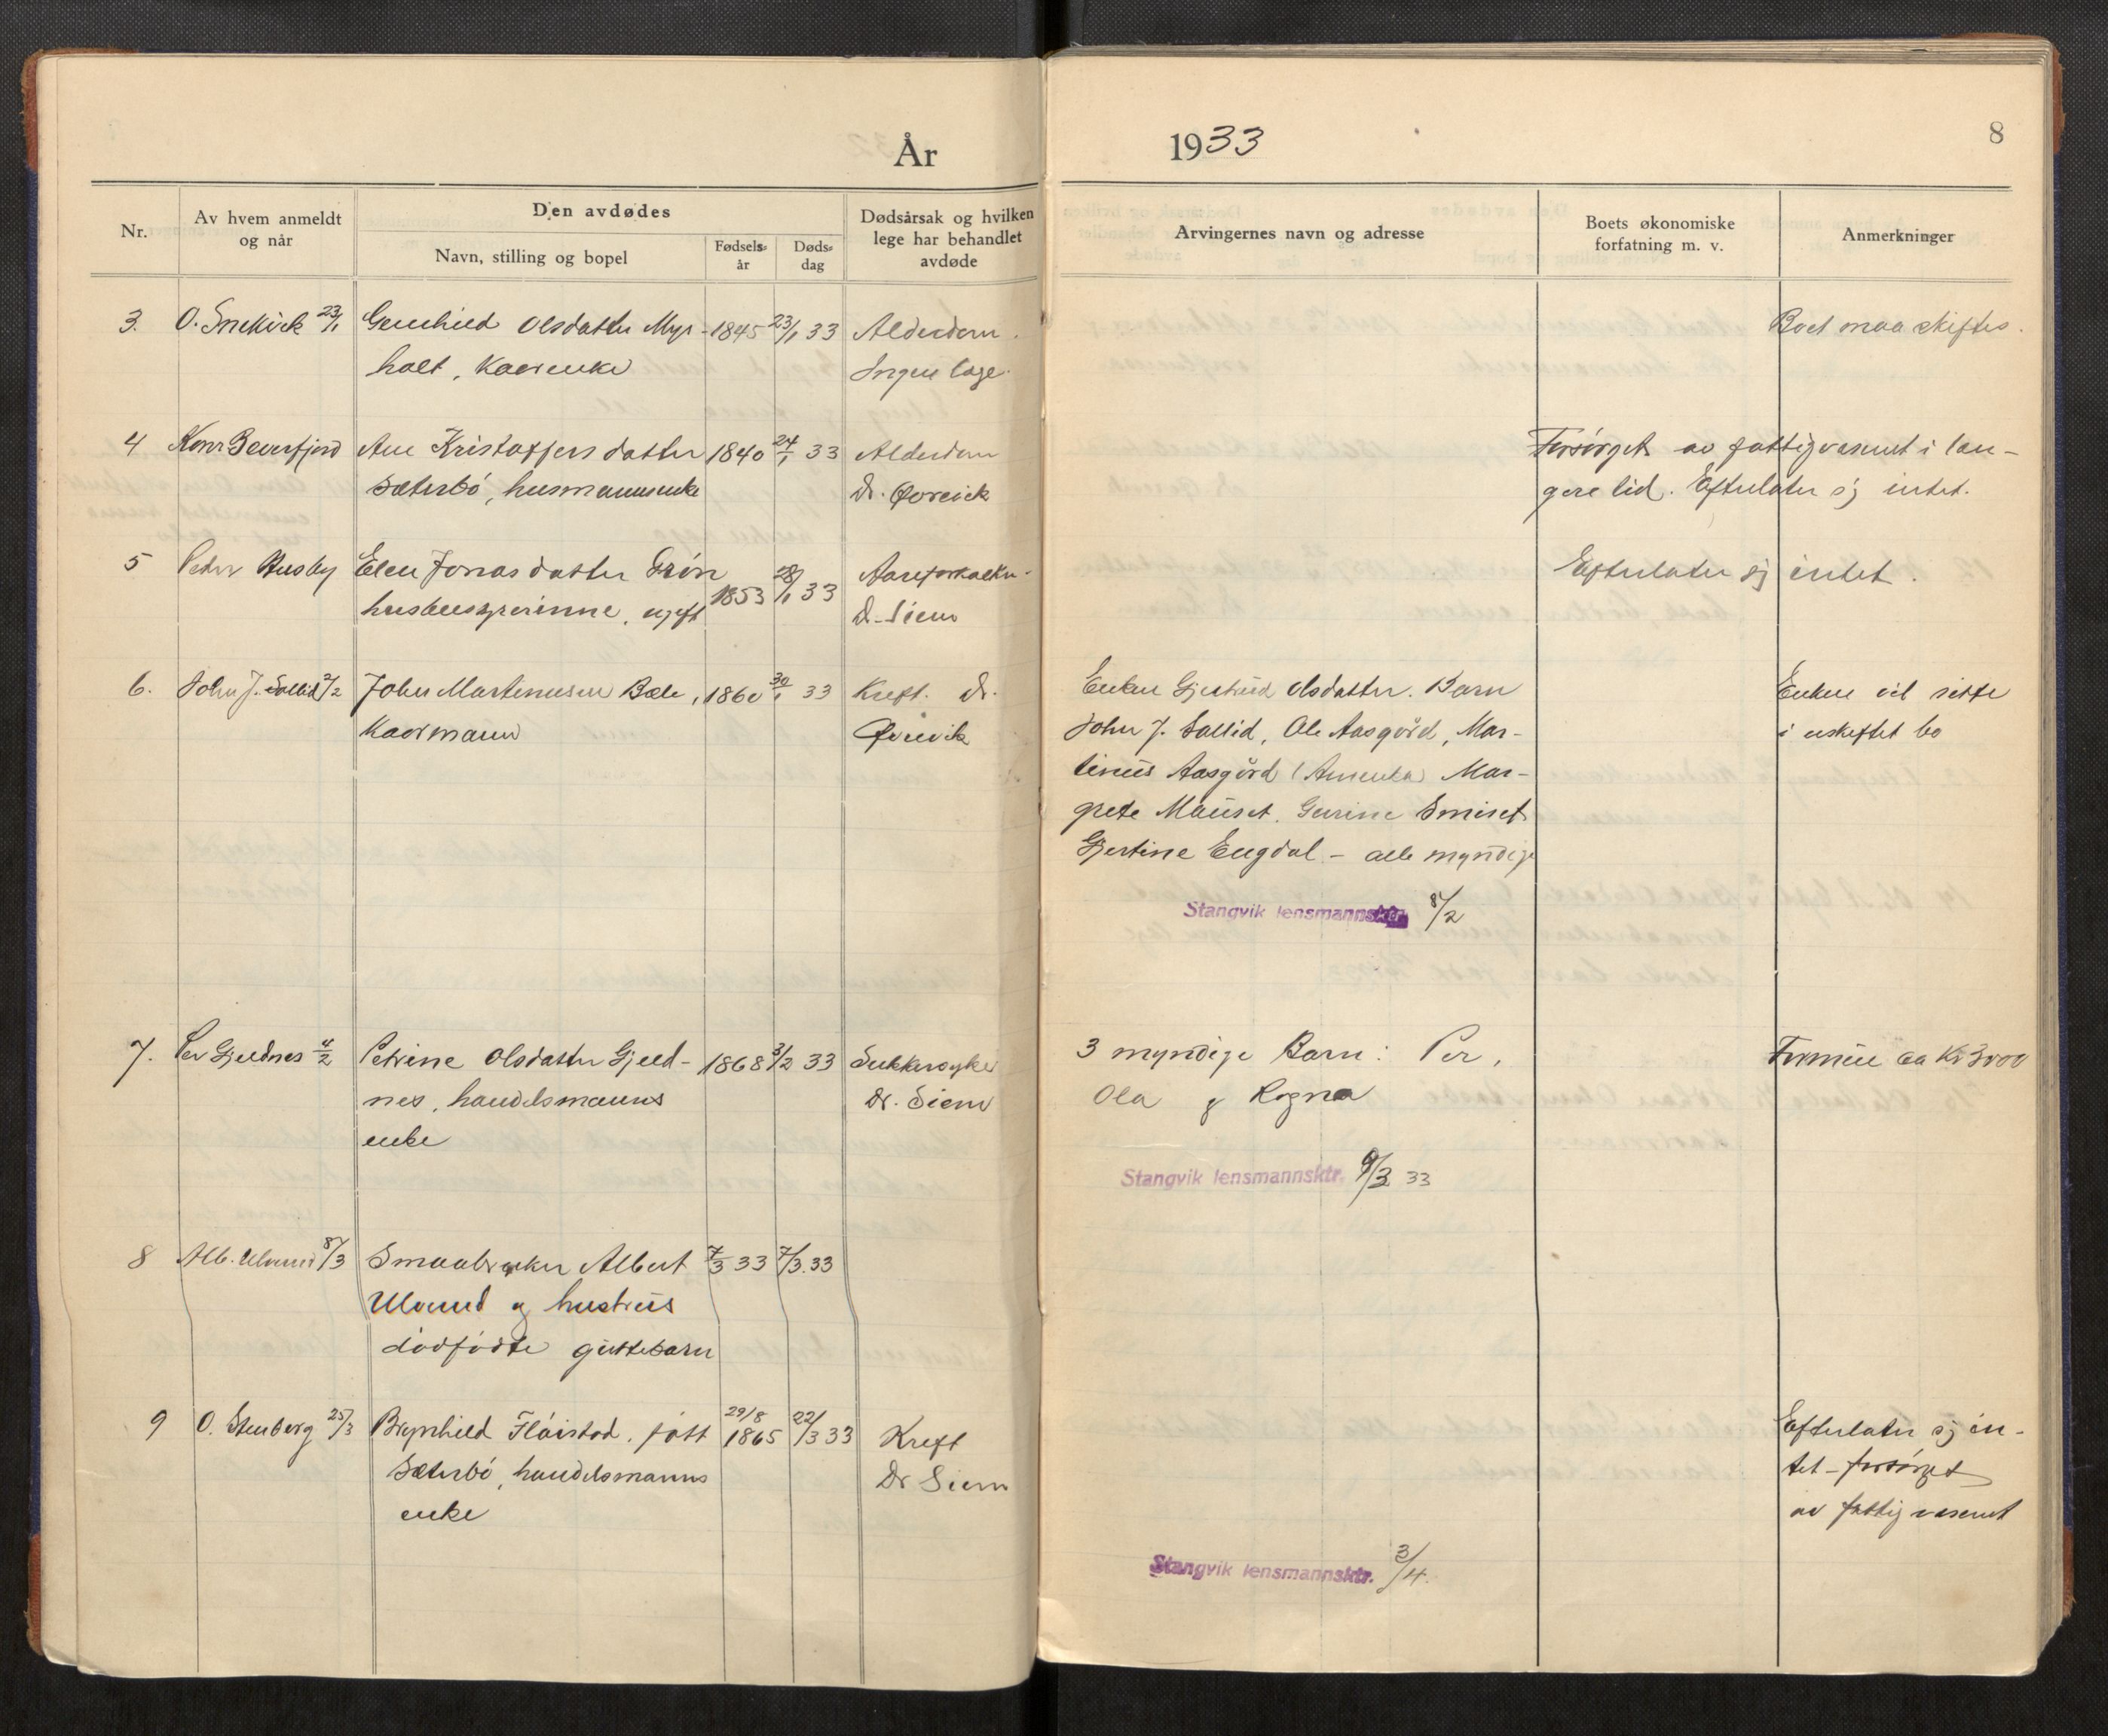 År 1933
8
Nr.
Av hvem anmeldt
og når
Den avdødes
Navn, stilling og bopel
Fødsels-
år
Døds-
dag
Dødsårsak og hvilken
lege har behandlet
avdøde
Arvingernes navn og adresse
Boets økonomiske
forfatning m. v.
Anmerkninger
3. O. 23/1 Gunhild Olsdatter Myr- 1845 23/1 33 Alderdom. Boet maa skiftes.
holt, Kaarenke Ingen læge.
4 Konr Bæverfjord Ane Kristoffersdatter 1840 24/1 33 Alderdom Forsørget av fattigvæsenet i læn-
Sæterbø, husmannsenke Dr. Qvrevik gere tid. Efterlater sig intet.
5 Peder Husby Elen Jonasdatter Grøn
husbestyrerinne, ugift 1853 28/1 33 Aareforkalkn. Efterlater sig intet.
Dr. Siem
6. John J. Sollid 2/2 John Martinusen Bæle, 1860 30/1 33 Kreft. Dr. Enken Gjertrud Olsdatter. Barn Enken vil sitte
Kaarmann Qvrevik John J. Sollid, Ole Aasgård, Mar- i uskiftet bo
tinus Aasgård (Amerika) Mar-
grete Mauset, Gurine Smiset
Gjertine Engdal - alle myndige
Stangvik lensmannsktr. 8/2
7. Per Gjeldnes 4/2 Petrine Olsdatter Gjeld- 1868 3/2 33 Sukkersyke 3 myndige Barn: Per, Formue ca Kr 3000
nes, handelsmanns Dr. Siem Ola og Ragna
enke
Stangvik lensmannsktr. 9/3 33
8 Alb. Ulvund 8/3 Smaabruker Albert 7/3 33 7/3.33
Ulvund og hustrus
dødfødte guttebarn
9 O. Stenberg 25/3 Brynhild Fløistad, født 29/8 1865 22/3 33 Kreft Efterlater sig in-
Sæterbø, handelsmanns Dr Siem tet - forsørget
enke av fattigvæsenet
Stangvik lensmannsktr. 3/4.